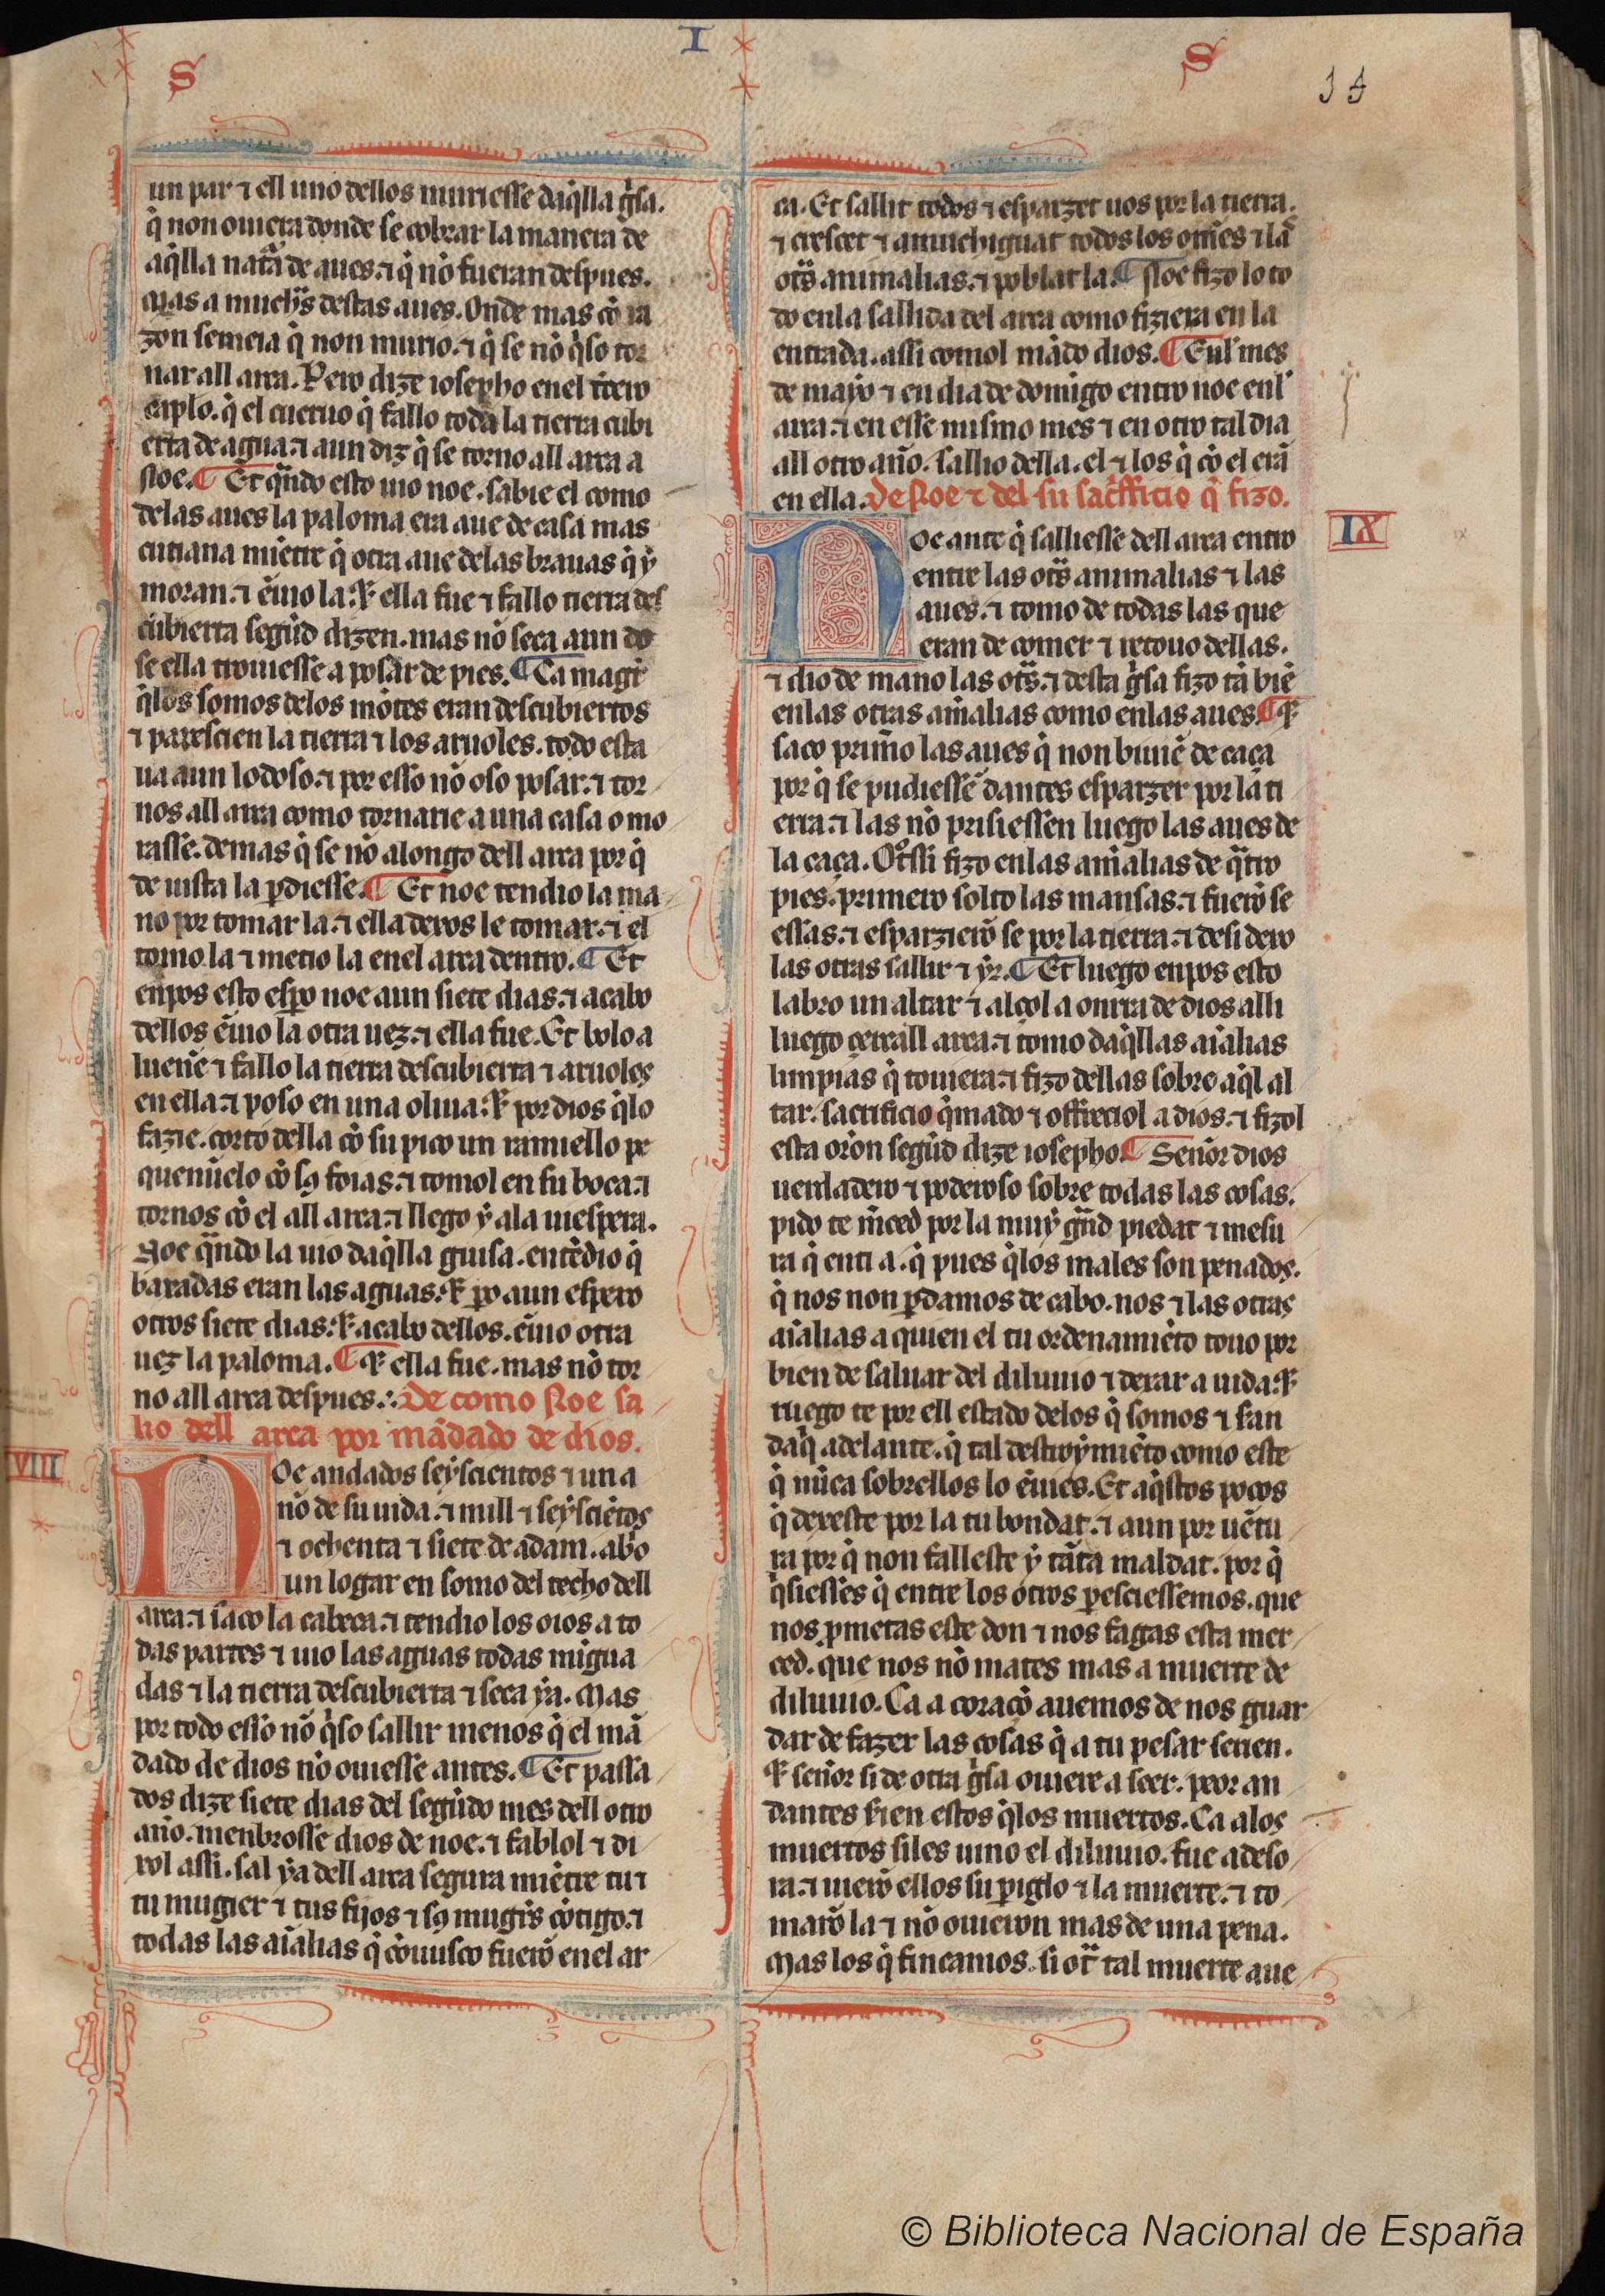 S I S
15
un par ⁊ ell uno dellos muriesse daq̃lla gͥsa.
q̃ non ouiera donde se cobrar la manera de
aq̃lla natᷓa de aues. ⁊ q̃ nõ fueran despues.
Mas a muchͣs destas aues. Onde mas cõ ra
zon semeia q̃ non murio. ⁊ q̃ se nõ qͥso tor
nar all arca. Pero dize iosepho enel
quel cueruo q̃ fallo toda la tierra cubi
erta de agua. ⁊ aun diz q̃ se torno all arca a
Noe. ¶ Et qᷓndo esto uio noe. sabie el como
delas aues la paloma era aue de casa mas
cutiana miẽtre q̃ otra aue delas brauas q̃ ẏ
moran. ⁊ ẽuio la. ⁊ ella fue ⁊ fallo tierra des
cubierta segũd dizen. mas nõ seca aun do
se ella trouiesse a posar de pies. ¶ Ca magͥ
q̃los somos delos mõtes eran descubiertos
⁊ parescien la tierra ⁊ los aruoles. todo esta
ua aun lodoso. ⁊ por esso nõ oso posar. ⁊ tor
nos all arca como tornarie a una casa o mo
rasse. demas q̃ se nõ alongo dell arca por q̃
de uista la ꝑdiesse. ¶ Et noe tendio la ma
no por tomar la. ⁊ ella dexos le tomar. ⁊ el
tomo la ⁊ metio la enel arca dentro. ¶ Et
enpos esto esꝑo noe aun siete dias. ⁊ acabo
dellos ẽuio la otra uez. ⁊ ella fue. Et bolo a
luen̄e ⁊ fallo la tierra descubierta ⁊ aruoles
en ella. ⁊ poso en una oliua. ⁊ por dios q̃lo
fazie. corto della cõ su pico un ramiello pe
quenuelo cõ sꝯ foias. ⁊ tomol en su boca. ⁊
tornos cõ el all arca. ⁊ llego ẏ ala uiespera.
Noe qᷓndo la uio daq̃lla guisa. entẽdio q̃
baxadas eran las aguas. ⁊ ꝑo aun espero
otros siete dias. ⁊ acabo dellos. ẽuio otra
uez la paloma. ¶ ⁊ ella fue. mas nõ tor
no all arca despues. De como Noe sa
lio dell arca por mãdado de dios.
VIII
Noe andados seẏscientos ⁊ un a
nõ de su uida. ⁊ mill ⁊ seẏsciẽtos
⁊ ochenta ⁊ siete de adam. abͥo
un logar en somo del techo dell
arca. ⁊ saco la cabeça. ⁊ tendio los oios a to
das partes ⁊ uio las aguas todas mĩgua
das ⁊ la tierra descubierta ⁊ seca ẏa. Mas
por todo esso nõ qͥso sallir menos q̃ el mã
dado de dios nõ ouiesse antes. ¶ Et passa
dos dize siete dias del segũdo mes dell otro
an̄o. menbrosse dios de noe. ⁊ fablol ⁊ di
xol assi. sal ẏa dell arca segura miẽtre tu ⁊
tu mugier ⁊ tus fijos ⁊ sꝯ mugͥs cõtigo. ⁊
todas las aĩalias q̃ cõuusco fuerõ enel ar
ca. Et sallit todos ⁊ esparzet uos por la tierra.
⁊ crescet ⁊ amuchiguat todos los om̃es ⁊ las
otͣs animalias. ⁊ poblat la. ¶ Noe fizo lo to
do enla sallida del arca como fiziera en la
entrada. assi comol mãdo dios. ¶ Enl mes
de mayo ⁊ en dia de domĩgo entro noe enl
arca. ⁊ en esse mismo mes ⁊ en otro tal dia
all otro an̄o. sallio della. el ⁊ los q̃ cõ el erã
en ella. De Noe ⁊ del su sacͥfficio q̃ fizo.
IX
Noe ante q̃ salliesse dell arca entro
entre las otͣs animalias ⁊ las
aues. ⁊ tomo de todas las que
eran de comer ⁊ retouo dellas.
⁊ dio de mano las otͣs. ⁊ desta gͥsa fizo tã biẽ
enlas otras aĩmalias como enlas aues. ¶ ⁊
saco prim̃o las aues q̃ non biuiẽ de caça
por q̃ se pudiessẽ dantes esparzer por la ti
erra. ⁊ las nõ prisiessen luego las aues de
la caça. Otͦssi fizo enlas aĩmalias de qᷓtro
pies. primero solto las mansas. ⁊ fuerõ se
essas. ⁊ esparzierõ se por la tierra. ⁊ desi dexo
las otras sallir ⁊ ẏr. ¶ Et luego enpos esto
labro un altar ⁊ alçol a onrra de dios alli
luego çercall arca. ⁊ tomo daq̃llas aĩalias
limpias q̃ touiera. ⁊ fizo dellas sobre aq̃l al
tar. sacrificio q̃mado ⁊ offreciol a dios. ⁊ fizol
esta orõn segũd dize iosepho. ¶ Sen̄or dios
uerdadero ⁊ poderoso sobre todas las cosas.
pido te m̃ced por la muẏ gᷓnd piedat ⁊ mesu
ra q̃ en ti a. q̃ pues q̃los males son penados.
q̃ nos non ꝑdamos de cabo. nos ⁊ las otras
aĩalias a quien el tu ordenamiẽto touo por
bien de saluar del diluuio ⁊ dexar a uida. ⁊
ruego te por ell estado delos q̃ somos ⁊ seran
daq̃ adelante. q̃ tal destroẏmiẽto como este
q̃ nũca sobrellos lo ẽuies. Et aq̃stos pocos
q̃ dexeste por la tu bondat. ⁊ aun por uẽtu
ra por q̃ non falleste ẏ tãta maldat. por q̃
qͥsiesses q̃ entre los otros ꝑesciessemos. que
nos ꝓmetas este don ⁊ nos fagas esta mer
ced. que nos nõ mates mas a muerte de
diluuio. Ca a coraçõ auemos de nos guar
dar de fazer las cosas q̃ a tu pesar serien.
⁊ sen̄or si de otra gͥsa ouiere a seer. peor an
dantes serien estos q̃los muertos. Ca alos
muertos siles uino el diluuio. fue adeso
ra. ⁊ uierõ ellos su ꝑiglo ⁊ la muerte. ⁊ to
marõ la ⁊ nõ ouieron mas de una pena.
Mas los q̃ fincamos. si otͣ tal muerte aue
© Biblioteca Nacional de España